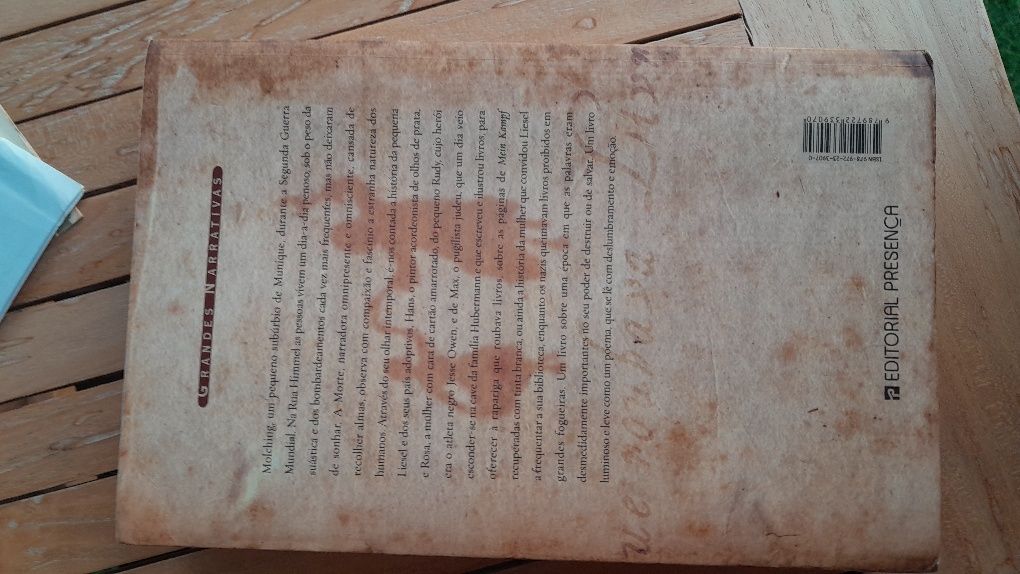 GRANDES NARRATIVAS
Molching, um pequeno subúrbio de Munique, durante a Segunda Guerra
Mundial. Na Rua Himmel as pessoas vivem um dia-a-dia penoso, sob o peso da
suástica e dos bombardeamentos cada vez mais frequentes, mas não deixaram
de sonhar. A Morte, narradora omnipresente e omnisciente, cansada de
recolher almas, observa com compaixão e fascínio a estranha natureza dos
humanos. Através do seu olhar intemporal, é-nos contada a história da pequena
Liesel e dos seus pais adoptivos, Hans, o pintor acordeonista de olhos de prata,
e Rosa, a mulher com cara de cartão amarrotado, do pequeno Rudy, cujo herói
era o atleta negro Jesse Owen, e de Max, o pugilista judeu, que um dia veio
esconder-se na cave da família Hubermann e que escreveu e ilustrou livros, para
oferecer à rapariga que roubava livros, sobre as páginas de Mein Kampf
recuperadas com tinta branca, ou ainda a história da mulher que convidou Liesel
a frequentar a sua biblioteca, enquanto os nazis queimavam livros proibidos em
grandes fogueiras. Um livro sobre uma época em que as palavras eram
desmedidamente importantes no seu poder de destruir ou de salvar. Um livro
luminoso e leve como um poema, que se lê com deslumbramento e emoção.
EDITORIAL PRESENÇA
ISBN 978-972-23-3907-0
9 789722 339070